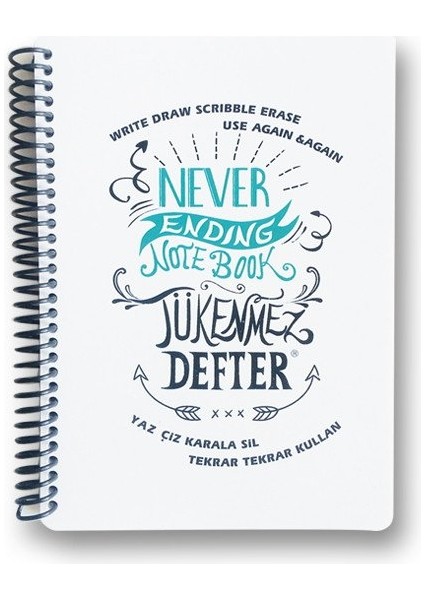 WRITE DRAW SCRIBBLE ERASE
USE AGAIN &AGAIN
NEVER
ENDING
NOTE BOOK
TÜKENMEZ
DEFTER®
XXX
YAZ ÇİZ KARALA SİL
TEKRAR TEKRAR KULLAN